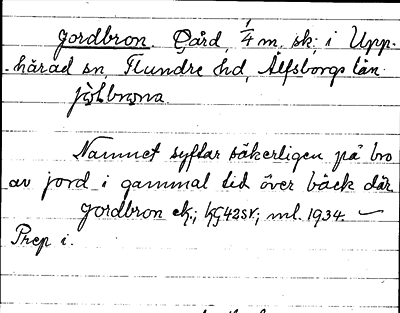 Jordbron. Gård, 1/4 m, sk; i Upp-
härad sn, Flundre hd, Älfsborgs län.
Namnet syftar säkerligen på bro
av jord i gammal tid över bäck där
Jordbron ek.; kF42SV; ml. 1934.
Prep i.